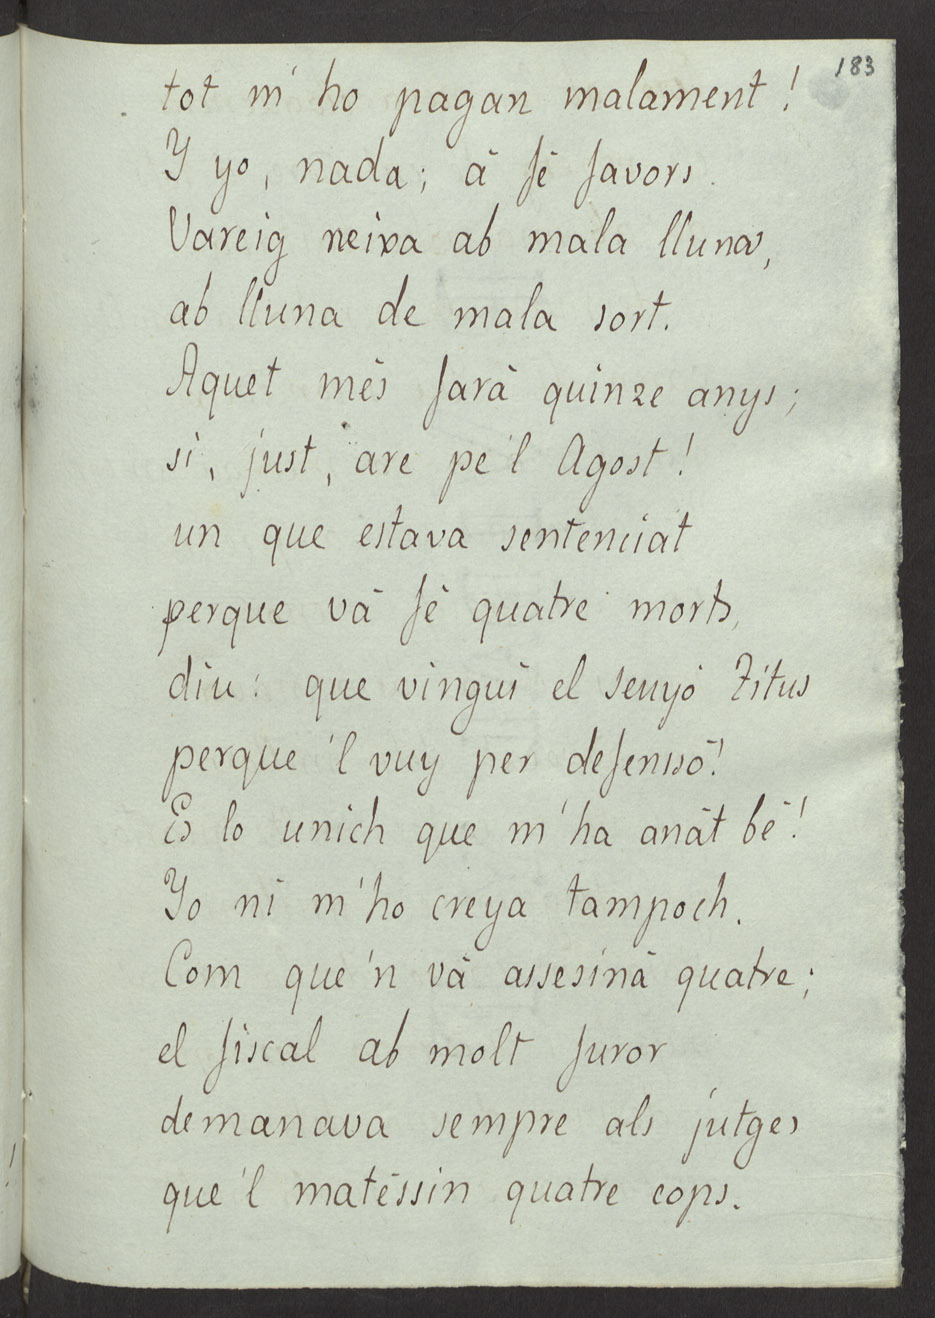 183
tot m' ho pagan malament!
Y yo, nada; á fé favors.
Vareig neixa ab mala lluna,
ab lluna de mala sort.
Aquet més fará quinze anys;
sí, just, are pe'l Agost!
un que estava sentenciat
perque vá fé quatre morts,
diu: que vingui el senyó Titus
perque 'l vuy per defensó!
Es lo unich que m' ha anát bé!
Yo ni m'ho creya tampoch.
Com que'n vá assesiná quatre;
el fiscal ab molt furor
demanava sempre als jutges
que'l matéssin quatre cops.